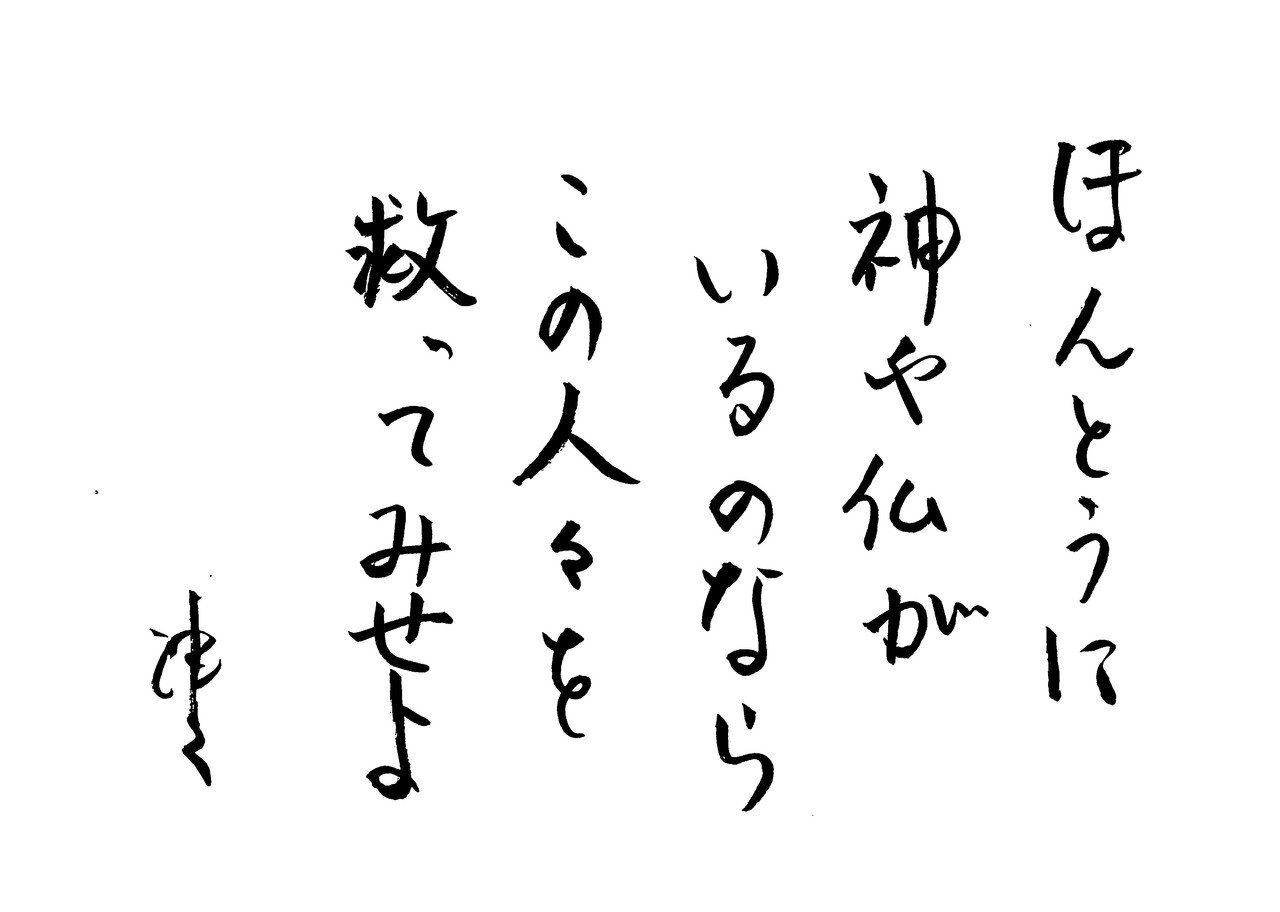 ほんとうに
神や仏が
いるのなら
この人々を
救ってみせよ